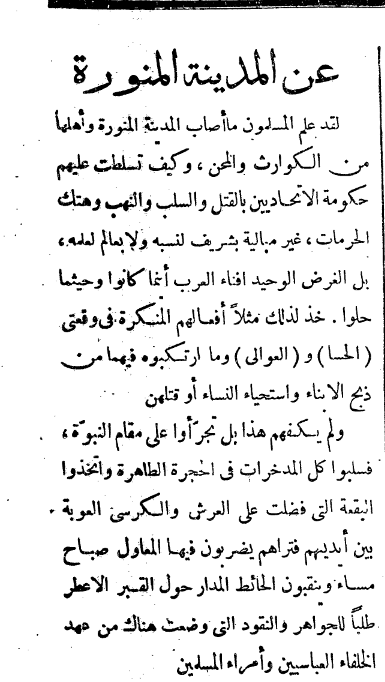 عن المدينة المنورة
لقد علم المسلمون ما أصاب المدينة المنورة وأهلها
من الكوارث والمحن ، وكيف تسلطت عليهم
حكومة الاتحاديين بالقتل والسلب والنهب وهتك
الحرمات ، غير مبالية بشريف لنسبه ولا بعالم لعلمه ،
بل الغرض الوحيد افناء العرب أنما كانوا وحيثما
حلوا . خذ لذلك مثلاً أفعالهم المنكرة فى وقعتى
( الحسا ) و ( العوالى ) وما ارتكبوه فيهما من
ذبح الابناء واستحياء النساء أو قتلهن
ولم يكفهم هذا بل تجرّأوا على مقام النبوّة ،
فسلبوا كل المدخرات فى الحجرة الطاهرة واتخذوا
البقعة التى فضلت على العرش والكرسى العوبة
بين أيديهم فتراهم يضربون فيها المعاول صباح
مساء وينقبون الحائط المدار حول القبر الاعطر
طلباً للجواهر والنقود التى وضعت هناك من عهد
الخلفاء العباسيين وأمراء المسلمين